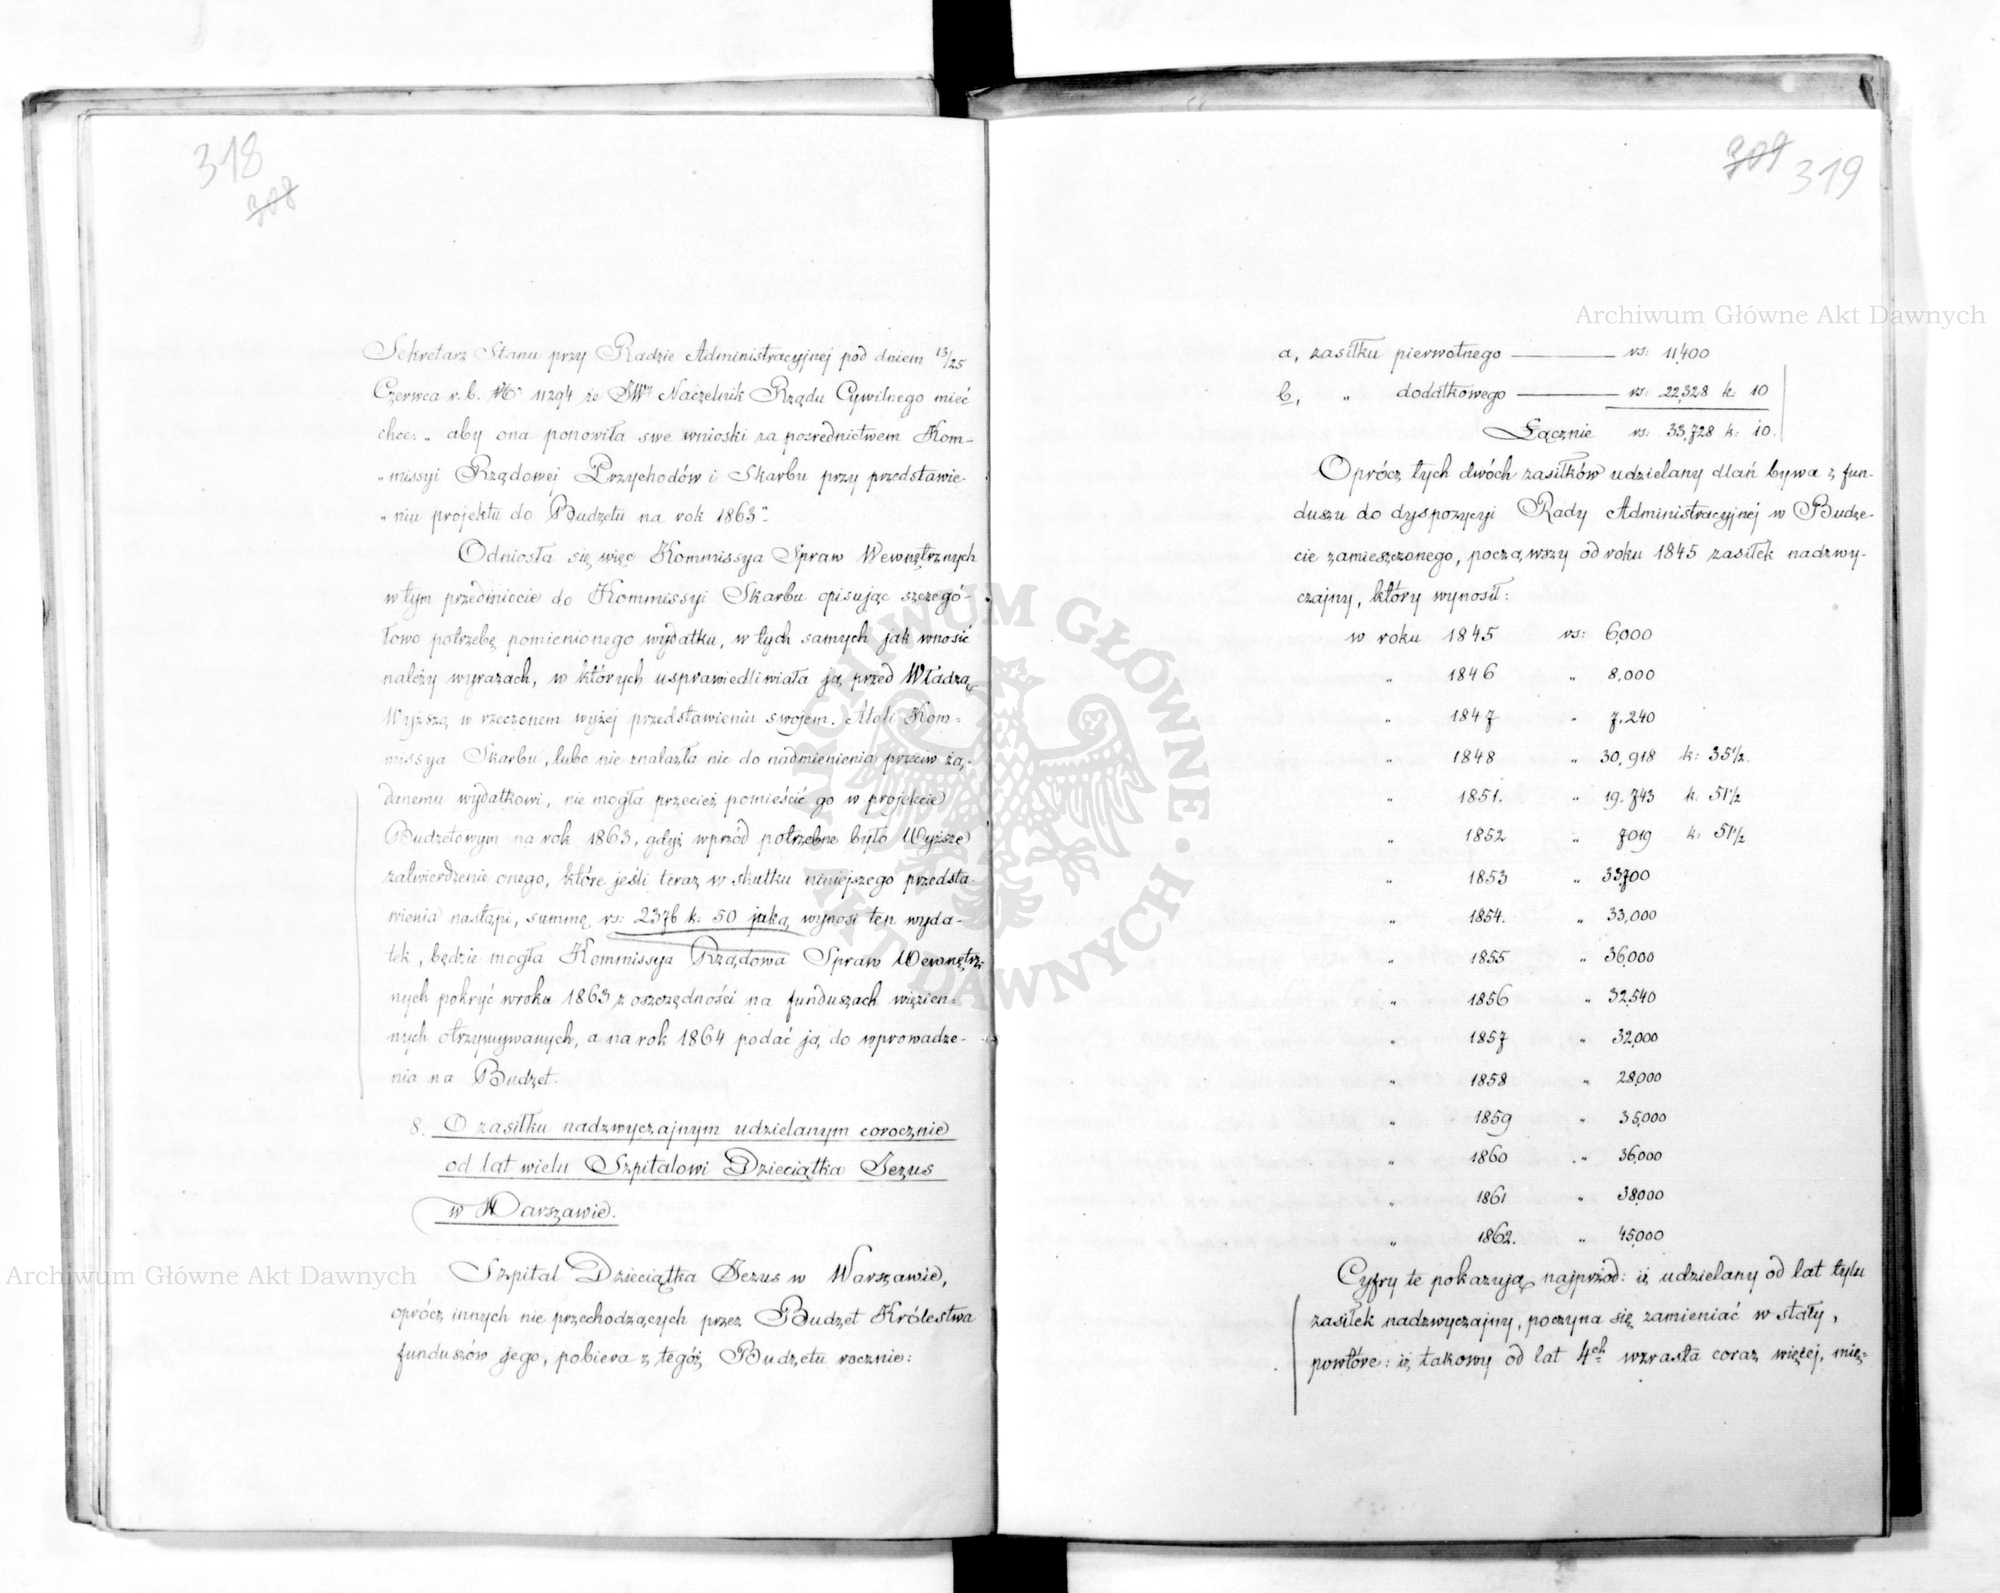 318
308
Sekretarz Stanu przy Radzie Administracyjnej pod dniem 13/25
Czerwca r. b. No 11294 że JWny Naczelnik Rządu Cywilnego mieć
chce: „ aby ona ponowiła swe wnioski za pośrednictwem Kom-
„ missyi Rządowej Przychodów i Skarbu przy przedstawie-
„ niu projektu do Budżetu na rok 1863".
Odniosła się więc Kommissya Spraw Wewnętrznych
w tym przedmiocie do Kommissyi Skarbu opisując szczegó-
łowo potrzebę pomienionego wydatku, w tych samych jak wnosić
należy wyrazach, w których usprawiedliwiała ją przed Władzą
Wyższą w rzeczonem wyżej przedstawieniu swojem. Atoli Kom-
missya Skarbu, lubo nie znalazła nic do nadmienienia przeciw żą-
danemu wydatkowi, nie mogła przecież pomieścić go w projekcie
Budżetowym na rok 1863, gdyż wprzód potrzebne było Wyższe
zatwierdzenie onego, które jeśli teraz w skutku niniejszego przedsta-
wienia nastąpi, summę rs: 2376 k: 50 jaką wynosi ten wyda-
tek, będzie mogła Kommissya Rządowa Spraw Wewnętrz-
nych pokryć w roku 1863 z oszczędności na funduszach więzien-
nych otrzymywanych, a na rok 1864 podać ją do wprowadze-
nia na Budżet.
8. O zasiłku nadzwyczajnym udzielanym corocznie
od lat wielu Szpitalowi Dzieciątka Jezus
w Warszawie.
Szpital Dzieciątka Jezus w Warszawie,
oprócz innych nie przechodzących przez Budżet Królestwa
funduszów jego, pobiera z tegóż Budżetu rocznie:
309 319
a, zasiłku pierwotnego rs: 11,400
b, „ dodatkowego rs: 22,328 k: 10
Łącznie rs: 33,728 k: 10.
Oprócz tych dwóch zasiłków udzielany dlań bywa z fun-
duszu do dyspozycyi Rady Administracyjnej w Budże-
cie zamieszczonego, począwszy od roku 1845 zasiłek nadzwy-
czajny, który wynosił:
w roku 1845 rs: 6,000
„ 1846 „ 8,000
„ 1847 „ 7,240
„ 1848 „ 30,918 k: 35½
„ 1851. „ 19,743 k: 51½
„ 1852 „ 7019 k: 51½
„ 1853 „ 33,700
„ 1854. „ 33,000
„ 1855 „ 36,000
„ 1856 „ 32,540
„ 1857 „ 32,000
„ 1858 „ 28,000
„ 1859 „ 35,000
„ 1860 „ 36,000
„ 1861 „ 38,000
„ 1862. „ 45,000
Cyfry te pokazują najprzód: iż udzielany od lat tylu
zasiłek nadzwyczajny, poczyna się zamieniać w stały,
powtóre: iż takowy od lat 4ch wzrasta coraz więcej, mię-
Archiwum Główne Akt Dawnych
Archiwum Główne Akt Dawnych
ARCHIWUM GŁÓWNE · AKT DAWNYCH ·